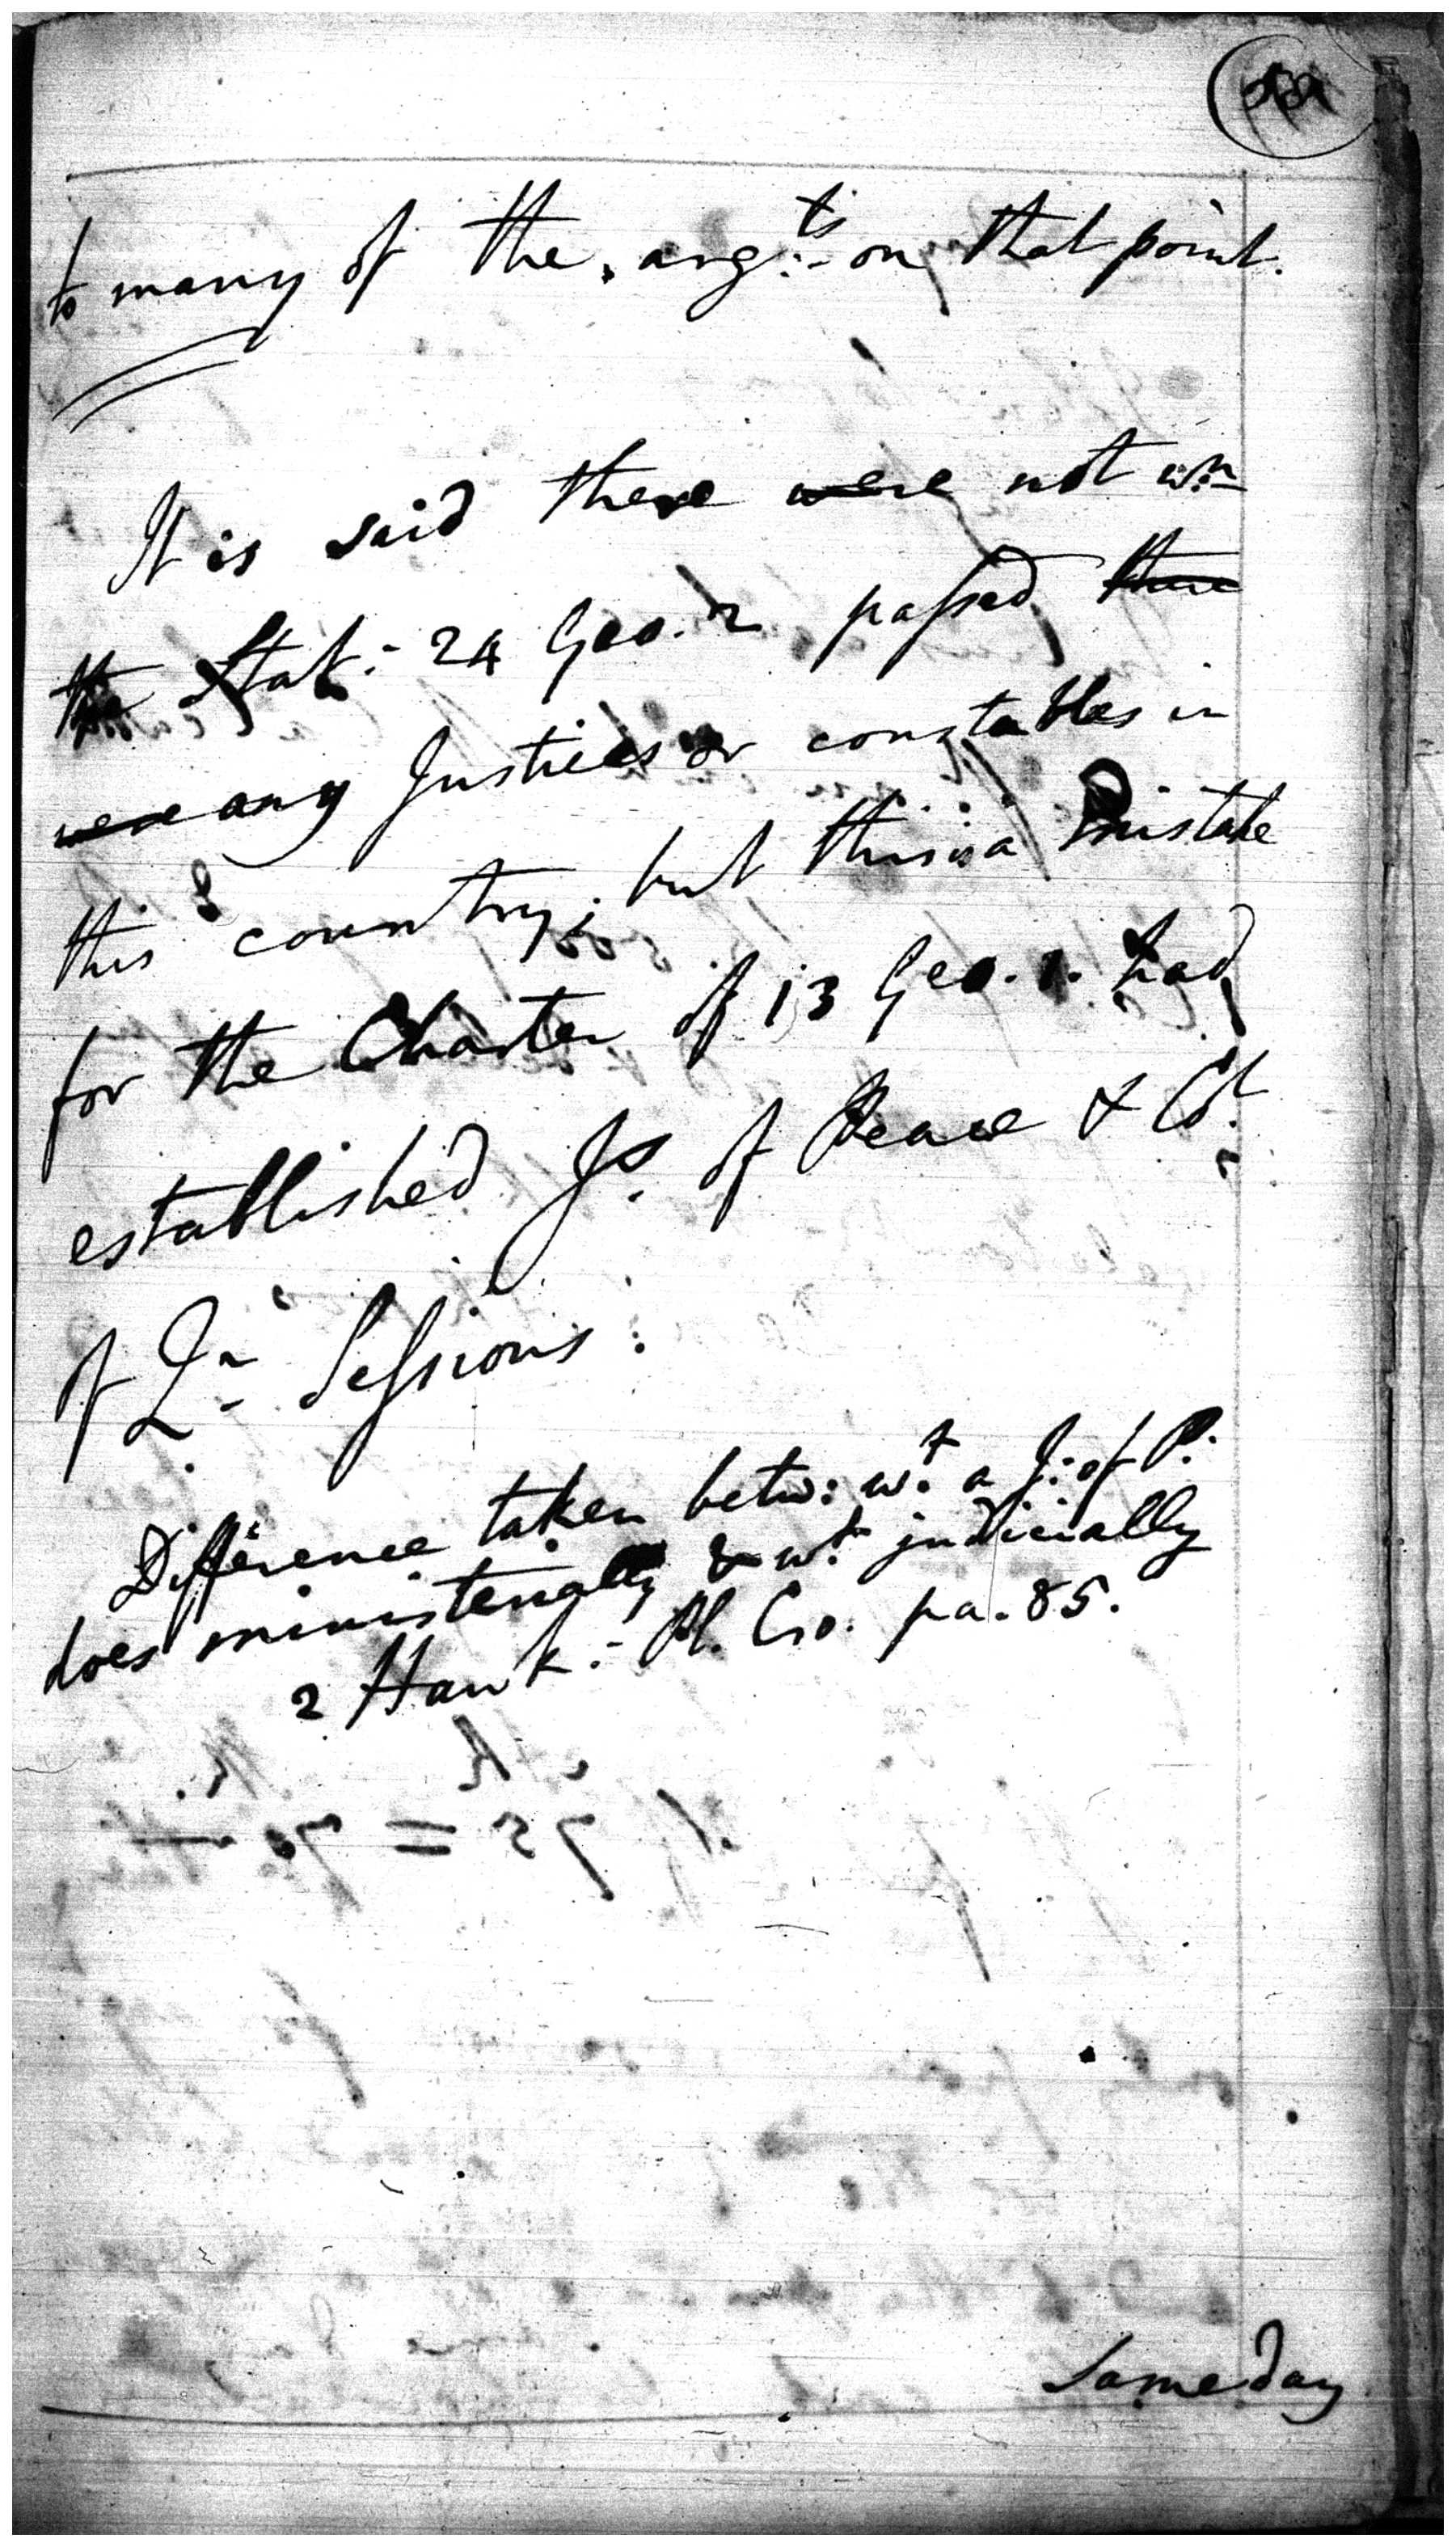 to many of the argts on that point.
It is said there were not wn
the Stat: 24 Geo. 2 passed there
were any Justices or constables in
this country; but this is a mistake
for the Charter of 13 Geo. 1. had
established Js. of Peace & Ct.
of Qr Sessions:
Difference taken betw: wt. a J: of P:
does ministerially & wt. judicially
2 Hawk: Pl. Cro. pa. 85.
Same day